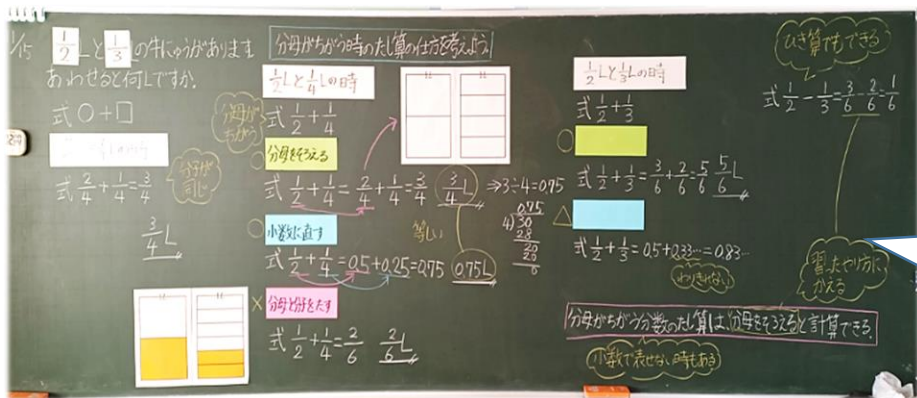 1/15
1/2Lと1/3Lの牛にゅうがあります。
あわせると何Lですか。
式○+□
式 2/4+1/4=3/4
分子が同じ
3/4L
分母がちがう時のたし算の仕方を考えよう。
1/2Lと1/4Lの時
分母がちがう
式 1/2+1/4
○ 分母をそろえる
式 1/2+1/4=2/4+1/4=3/4 3/4L ⇒3÷4=0.75
0.75
4)30
28
20
20
0
等しい
○ 小数に直す
式 1/2+1/4=0.5+0.25=0.75 0.75L
× 分母と分子をたす
式 1/2+1/4=2/6 2/6L
1/2Lと1/3Lの時
式 1/2+1/3
○
式 1/2+1/3=3/6+2/6=5/6 5/6L
△
式 1/2+1/3=0.5+0.33…=0.83…
わりきれない
分母がちがう分数のたし算は、分母をそろえると計算できる。
小数で表せない時もある
ひき算でもできる
式 1/2-1/3=3/6-2/6=1/6
習ったやり方にかえる